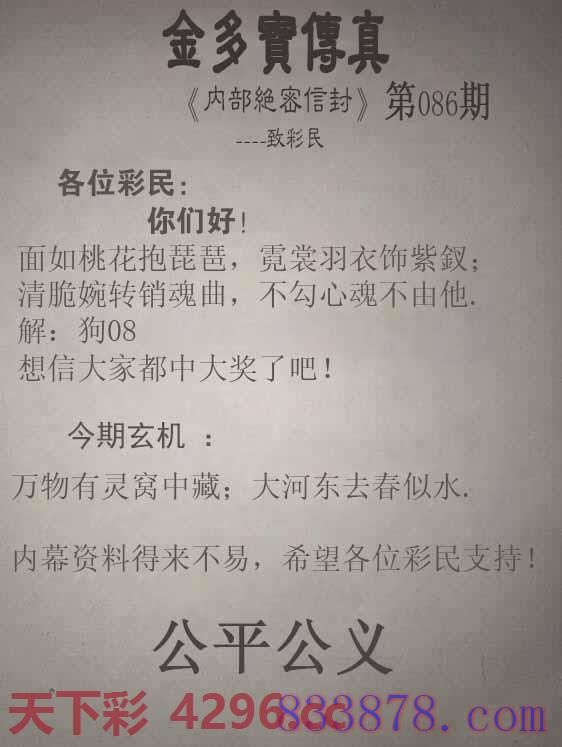 金多寶傳真
《内部絶密信封》第086期
----致彩民
各位彩民:
你们好!
面如桃花抱琵琶，霓裳羽衣饰紫釵;
清脆婉转销魂曲，不勾心魂不由他.
解：狗08
想信大家都中大奖了吧!
今期玄机 :
万物有灵窝中藏；大河东去春似水.
内幕资料得来不易，希望各位彩民支持!
公平公义
天下彩 4296.cc
883878.com